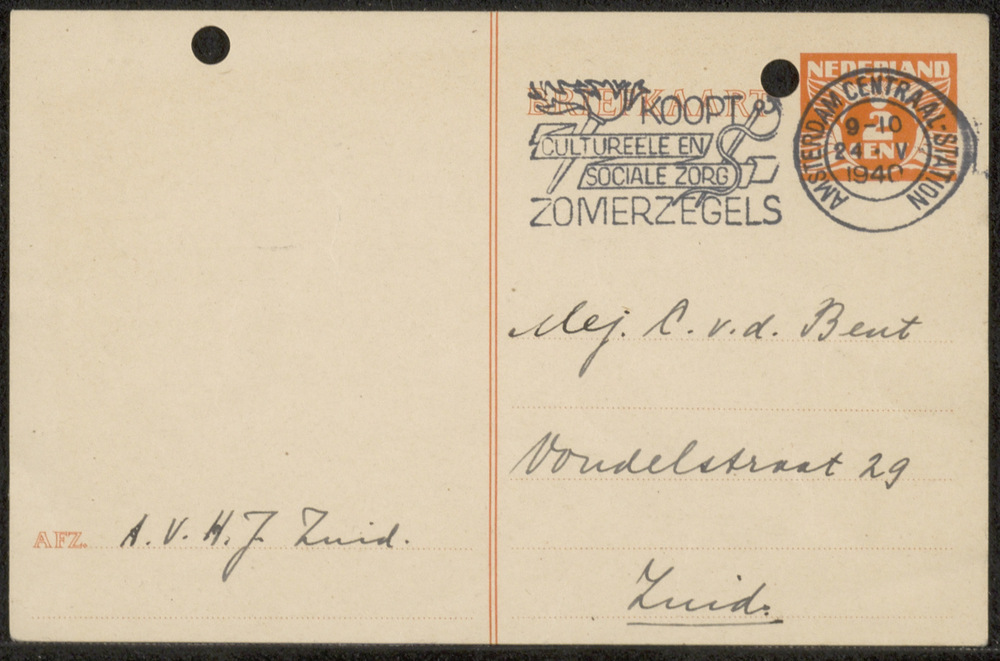 NEDERLAND
2
CENT
AMSTERDAM CENTRAAL-STATION
9-10
24 V
1940
BRIEFKAART
KOOPT
CULTUREELE EN
SOCIALE ZORG
ZOMERZEGELS
Mej. C. v. d. Bent
Vondelstraat 29
Zuid.
AFZ. A. V. H. J. Zuid.